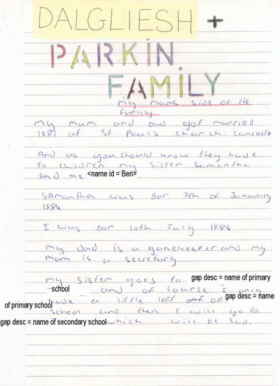 DALGLIESH +
PARKIN
FAMILY
my mums side of the
family
my mum and dad got married
1981 at St Pauls church Lincoln
And as you should know they have
to children my sister Samantha
and me <name id = Ben>
SAmantha was bor 7th of January
I was bor 10th July
my dad is a gamekeeper and my
mom is a secretary
my sister goes to gap desc = name of primary
school and of course I only
have a little bit of gap desc = name
of primary school
school and then I will go to
gap desc = name of secondary school which will be